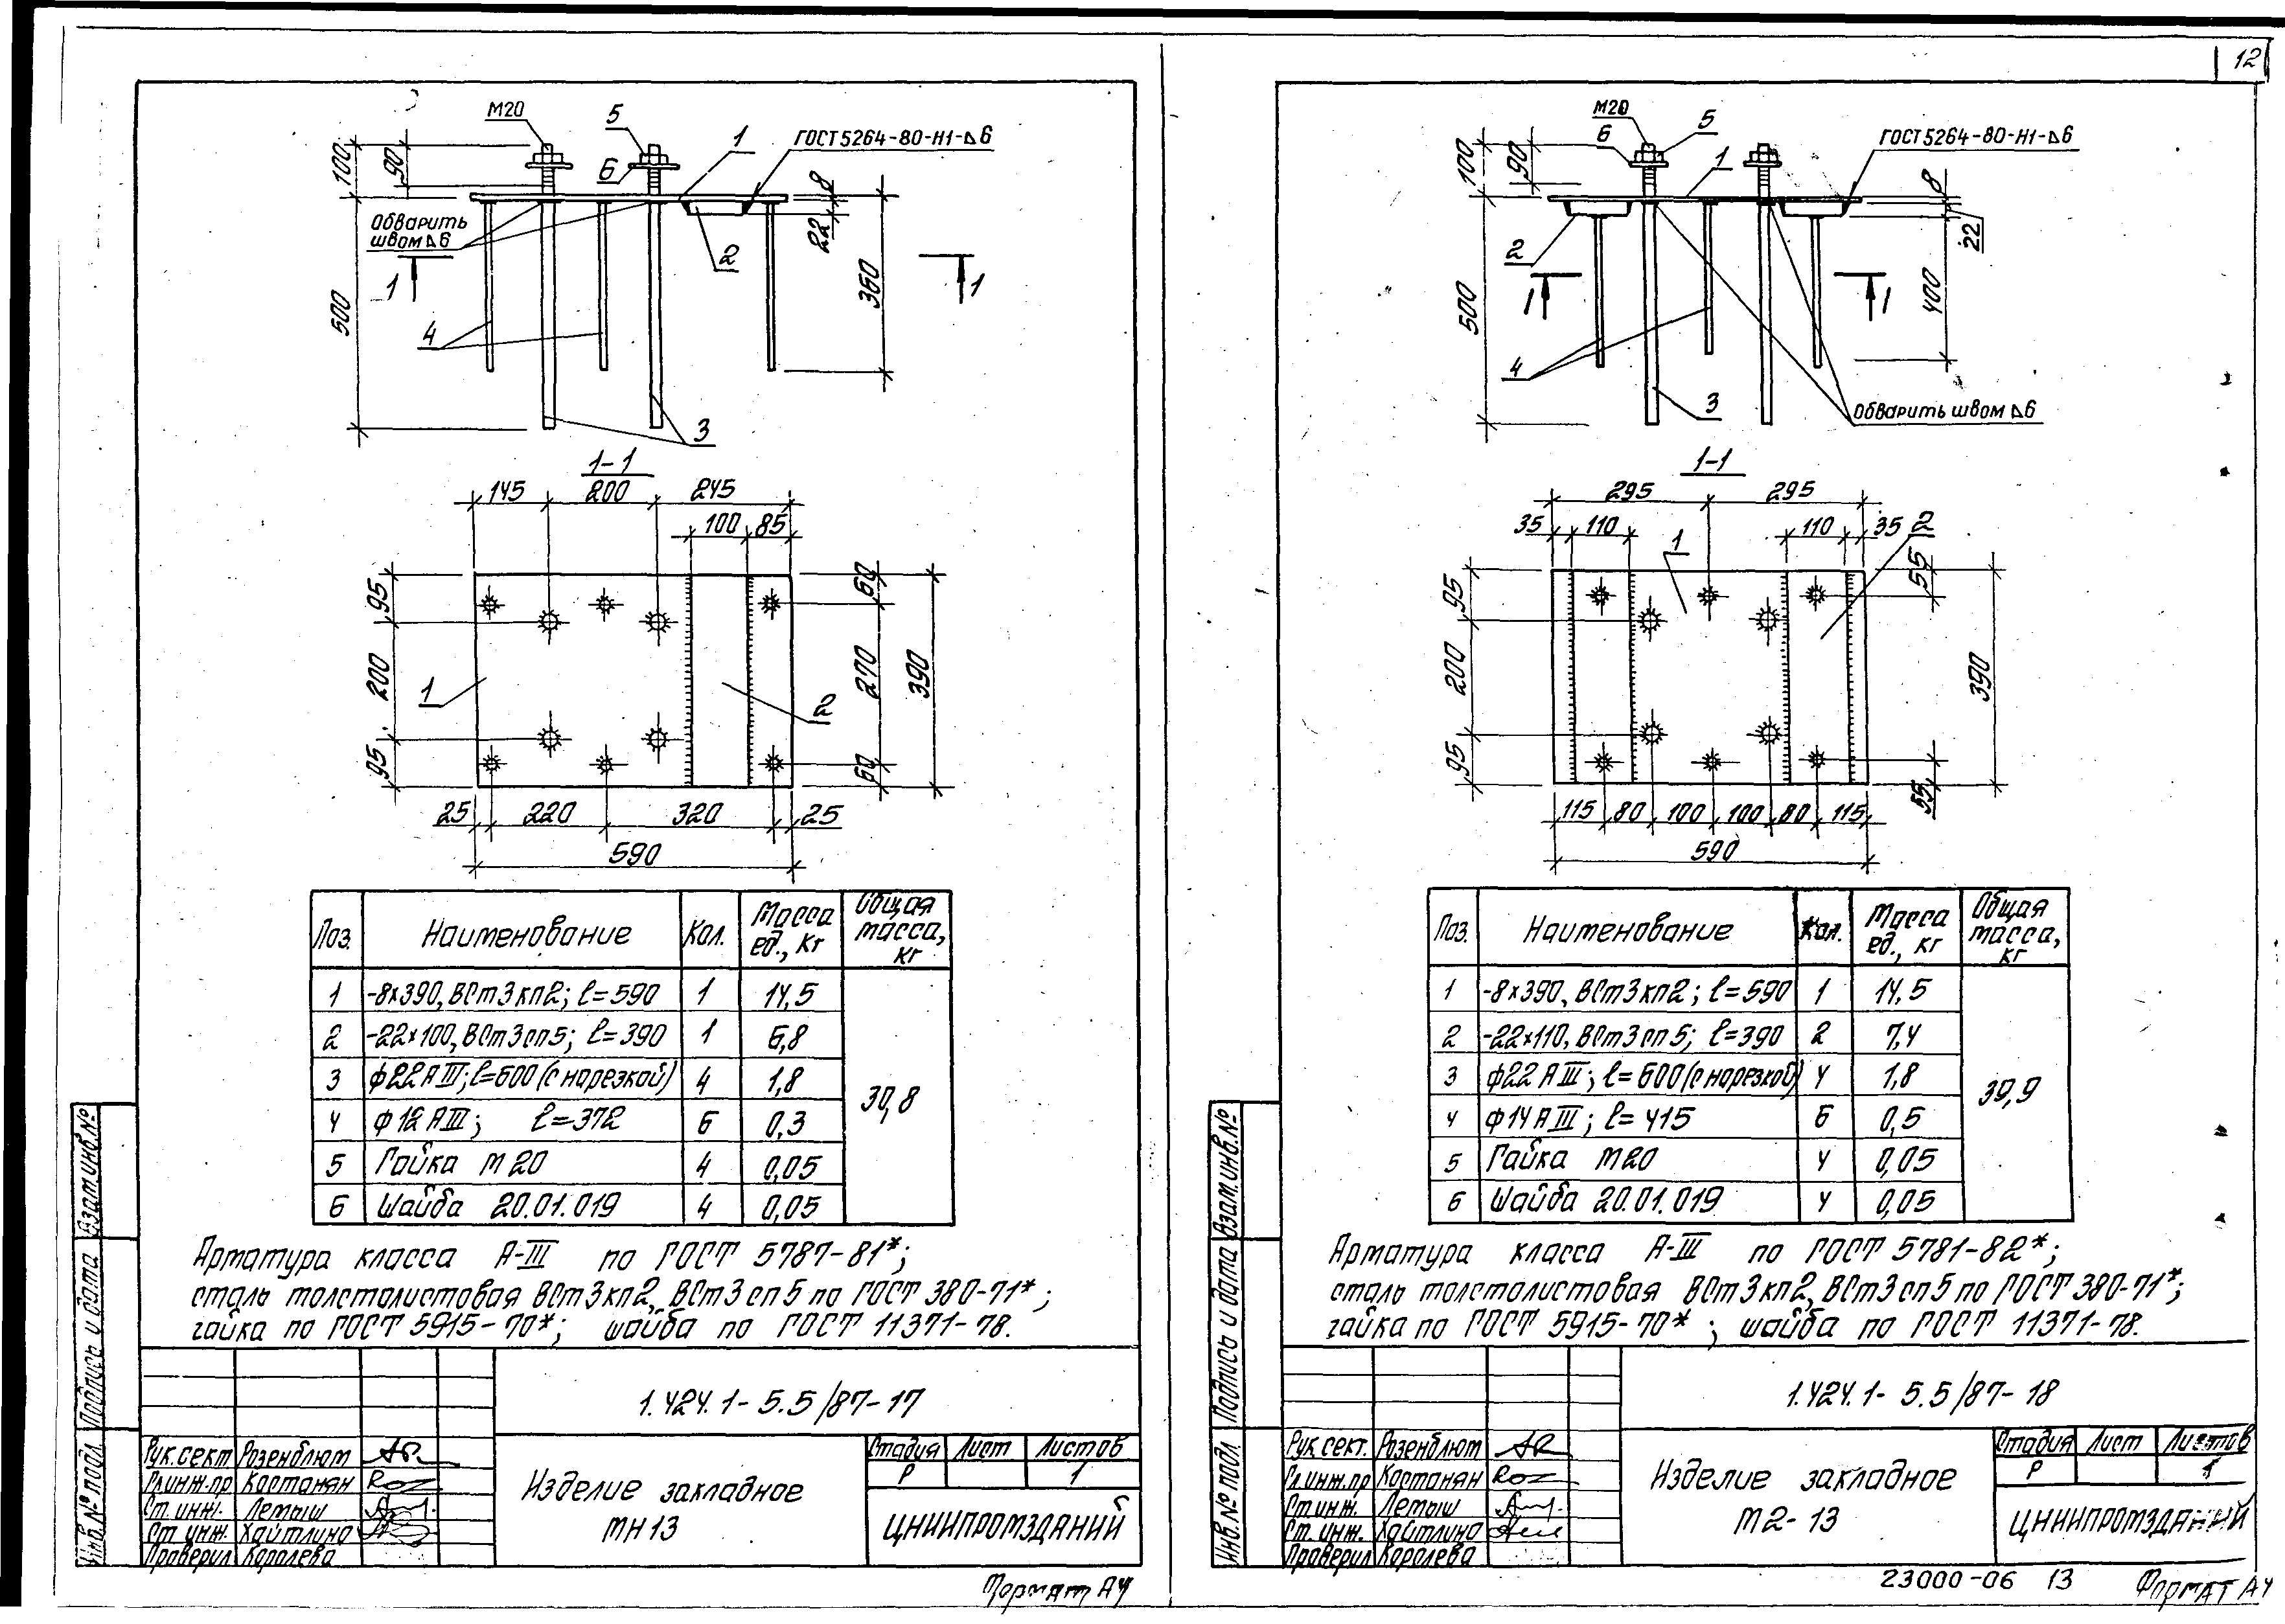 12
М20
5
1
ГОСТ 5264-80-Н1-Δ6
6
100
90
8
22
Обварить
швом Δ6
2
1
1
500
360
4
3
1-1
145
200
245
100
85
95
60
200
270
390
1
2
95
60
25
220
320
25
590
Поз.
Наименование
Кол.
Масса ед., кг
Общая масса, кг
1 -8×390, ВСт3кп2; ℓ=590 1 14,5
2 -22×100, ВСт3сп5; ℓ=390 1 6,8
3 ф22АIII; ℓ=600 (с нарезкой) 4 1,8
4 ф12АIII; ℓ=372 6 0,3
5 Гайка М20 4 0,05
6 Шайба 20.01.019 4 0,05
30,8
Арматура класса А-III по ГОСТ 5787-81*;
сталь толстолистовая ВСт3кп2, ВСт3сп5 по ГОСТ 380-71*;
гайка по ГОСТ 5915-70*; шайба по ГОСТ 11371-78.
1.424.1-5.5/87-17
Рук.сект Розенблюм
Гл.инж.пр Картанян
Ст.инж. Летыш
Ст.инж. Хайтлина
Проверил Королева
Изделие закладное
МН13
Стадия Лист Листов
Р 1
ЦНИИПРОМЗДАНИЙ
Формат А4
Инв.№ подл.
Подпись и дата
Взам.инв.№
М20
6
5
1
ГОСТ 5264-80-Н1-Δ6
100
90
8
22
2
1
1
500
400
4
3
Обварить швом Δ6
1-1
295
295
35
110
110
35
2
1
95
55
200
390
95
55
115
80
100
100
80
115
590
Поз.
Наименование
Кол.
Масса ед., кг
Общая масса, кг
1 -8×390, ВСт3кп2; ℓ=590 1 14,5
2 -22×110, ВСт3сп5; ℓ=390 2 7,4
3 ф22АIII; ℓ=600 (с нарезкой) 4 1,8
4 ф14АIII; ℓ=415 6 0,5
5 Гайка М20 4 0,05
6 Шайба 20.01.019 4 0,05
39,9
Арматура класса А-III по ГОСТ 5781-82*;
сталь толстолистовая ВСт3кп2, ВСт3сп5 по ГОСТ 380-71*;
гайка по ГОСТ 5915-70*; шайба по ГОСТ 11371-78.
1.424.1-5.5/87-18
Рук.сект. Розенблюм
Гл.инж.пр Картанян
Ст.инж. Летыш
Ст.инж. Хайтлина
Проверил Королева
Изделие закладное
М2-13
Стадия Лист Листов
Р 1
ЦНИИПРОМЗДАНИЙ
Инв.№ подл
Подпись и дата
Взам.инв.№
23000-06 13
Формат А4